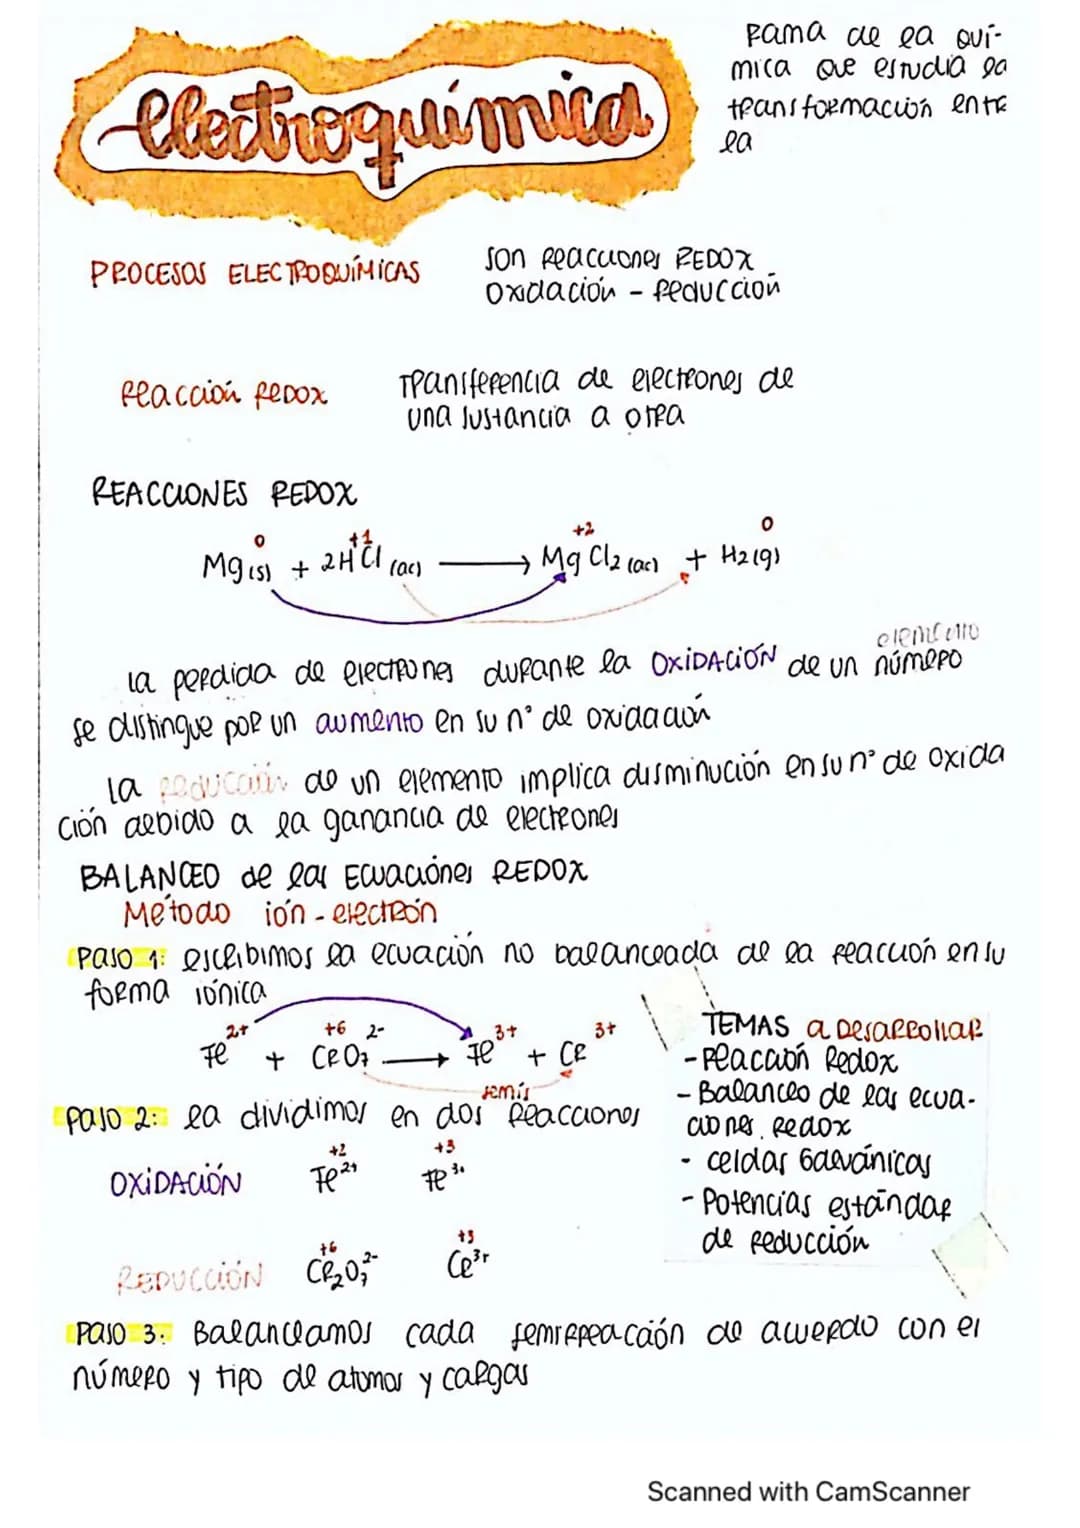 electroquímica
Rama de la quí-
mica que estudia la
transformación entre
la
PROCESOS ELECTROQUÍMICAS
son reacciones REDOX
Oxidación - Reducción
Reacción Redox
Transferencia de electrones de
una sustancia a otra
REACCIONES REDOX
0 +1 +2 0
Mg (s) + 2HCl (ac) ⟶ MgCl2 (ac) + H2(g)
elemento
la perdida de electrones durante la OXIDACIÓN de un número
se distingue por un aumento en su n° de oxidación
la reducción de un elemento implica disminución en su n° de oxida
ción debido a la ganancia de electrones
BALANCEO de las Ecuaciónes REDOX
Método ión - electrón
Paso 1: escribimos la ecuación no balanceada de la reacción en su
forma iónica
2+ +6 2- 3+ 3+
Fe + CrO7 ⟶ Fe + Cr
semis
Paso 2: la dividimos en dos Reacciones
+2 +3
OXIDACIÓN Fe²⁺ Fe³⁺
+6 +3
REDUCCIÓN Cr₂O₇²⁻ Cr³⁺
TEMAS a Desarrollar
- Reacción Redox
- Balanceo de las ecua-
ciones Redox
- celdas Galvánicas
- Potencias estándar
de reducción
Paso 3: Balanceamos cada semirreacción de acuerdo con el
número y tipo de atomos y cargas
Scanned with CamScanner